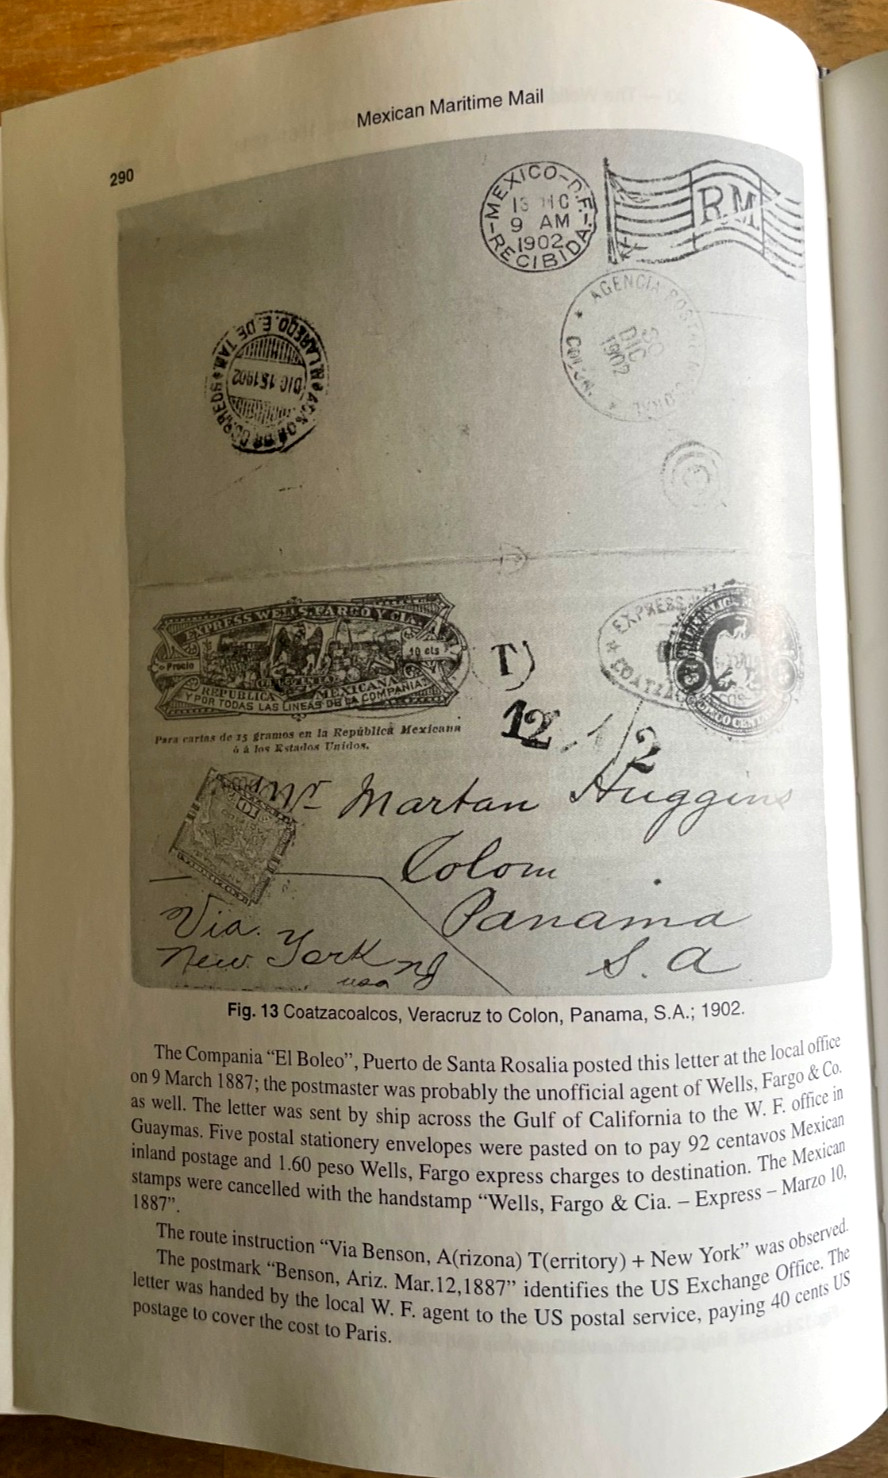 290
Mexican Maritime Mail
MEXICO-D.F.
13
9 AM
1902
RECIBIDA
RM
AGENCIA POSTAL
30
DIC
1902
COLON
LAREDO. E. DE TAM.
DIC 15 1902
EXPRESS WELLS, FARGO Y CIA.
Precio
10 cts
REPUBLICA MEXICANA
Y POR TODAS LAS LINEAS DE LA COMPAÑIA
Para cartas de 15 gramos en la República Mexicana
ó á los Estados Unidos.
T
EXPRESS
COATZA
CINCO CENT
12
1/2
Mr Martan Huggins
Colom
Panama
S. a
Via.
New York
usa
Fig. 13 Coatzacoalcos, Veracruz to Colon, Panama, S.A.; 1902.
The Compania “El Boleo”, Puerto de Santa Rosalia posted this letter at the local office
on 9 March 1887; the postmaster was probably the unofficial agent of Wells, Fargo & Co.
as well. The letter was sent by ship across the Gulf of California to the W. F. office in
Guaymas. Five postal stationery envelopes were pasted on to pay 92 centavos Mexican
inland postage and 1.60 peso Wells, Fargo express charges to destination. The Mexican
stamps were cancelled with the handstamp “Wells, Fargo & Cia. – Express – Marzo 10,
1887”.
The route instruction “Via Benson, A(rizona) T(erritory) + New York” was observed.
The postmark “Benson, Ariz. Mar.12,1887” identifies the US Exchange Office. The
letter was handed by the local W. F. agent to the US postal service, paying 40 cents US
postage to cover the cost to Paris.